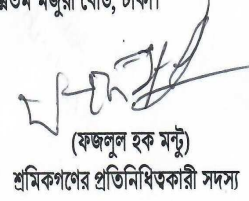 নিম্নতম মজুরী বোর্ড, ঢাকা।
(ফজলুল হক মন্টু)
শ্রমিকগণের প্রতিনিধিত্বকারী সদস্য